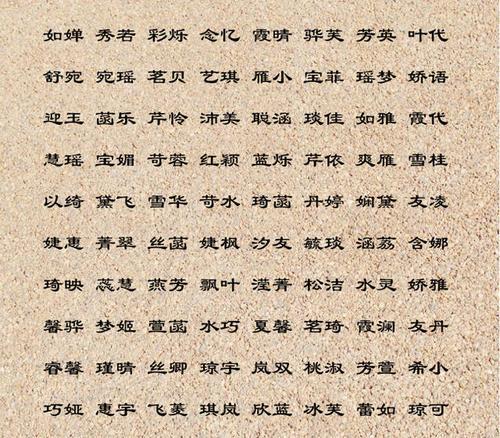 如婵 秀若 彩烁 念忆 霞晴 骅芙 芳英 叶代
舒宛 宛瑶 茗贝 艺琪 雁小 宝菲 瑶梦 娇语
迎玉 菡乐 芹怜 沛美 聪涵 琰佳 如雅 霞代
慧瑶 宝媚 苛蓉 红颖 蓝烁 芹依 爽雁 雪桂
以绮 黛飞 雪华 苛水 琦菡 丹婷 娴黛 友凌
婕惠 菁翠 丝菡 婕枫 汐友 毓琰 涵荔 含娜
琦映 蕊慧 燕芳 飘叶 滢菁 松洁 水灵 娇雅
馨骅 梦姬 萱菡 水巧 夏馨 茗琦 霞澜 友丹
睿馨 瑾晴 丝卿 琼宇 岚双 桃淑 芳萱 希小
巧娅 惠宇 飞菱 琪岚 欣蓝 冰芙 蕾如 琼可